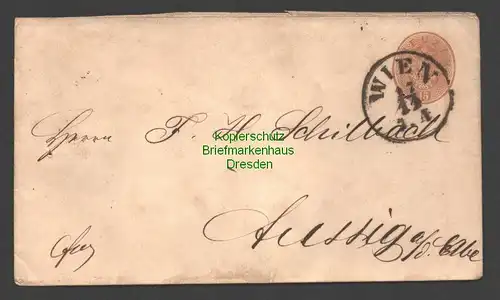 WIEN
17
12
Herrn F. H. Schilbach
Kopierschutz
Briefmarkenhaus
Dresden
Aussig a/d. Elbe